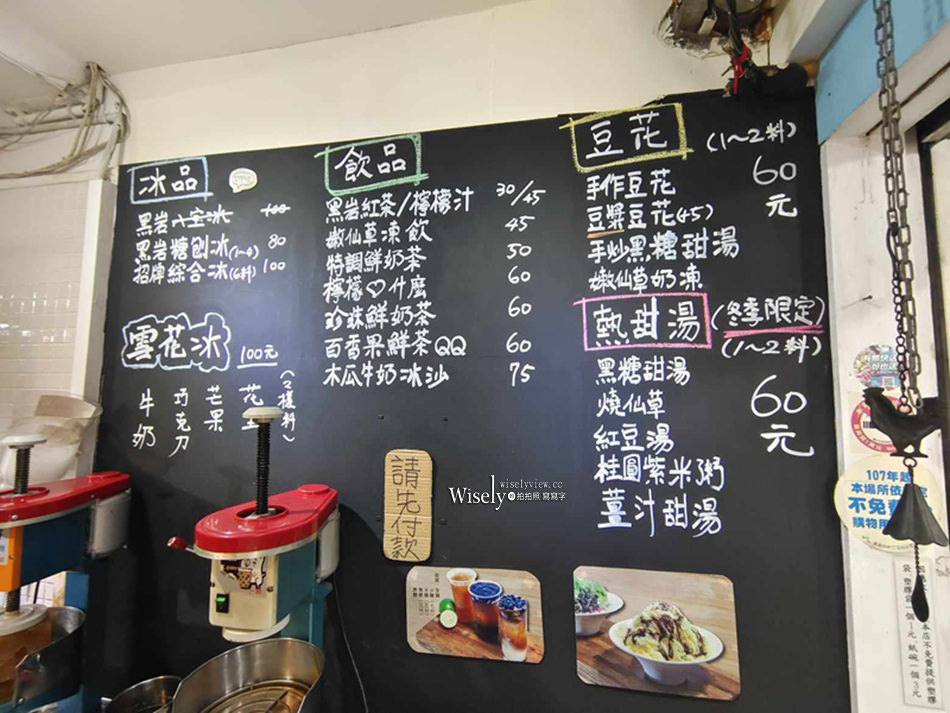 冰品
黑岩八宝冰 100
黑岩糖刨冰(1~4) 80
招牌綜合冰(6料) 100
雪花冰 100元
(2樣料)
牛奶
巧克力
芒果
花生
飲品
黑岩紅茶/檸檬汁 30/45
嫩仙草凍飲 45
特調鮮奶茶 50
檸檬♡什麼 60
珍珠鮮奶茶 60
百香果鮮茶QQ 60
木瓜牛奶冰沙 75
豆花 (1~2料)
60元
手作豆花
豆漿豆花(45)
手炒黑糖甜湯
嫩仙草奶凍
熱甜湯 (冬季限定)
(1~2料)
60元
黑糖甜湯
燒仙草
紅豆湯
桂圓紫米粥
薑汁甜湯
請先付款
wiselyview.cc
Wisely 拍拍照 寫寫字
107年起
本場所依
不免費
購物用
本店不免費提供塑膠
袋 塑膠袋一個1元,紙碗一個3元